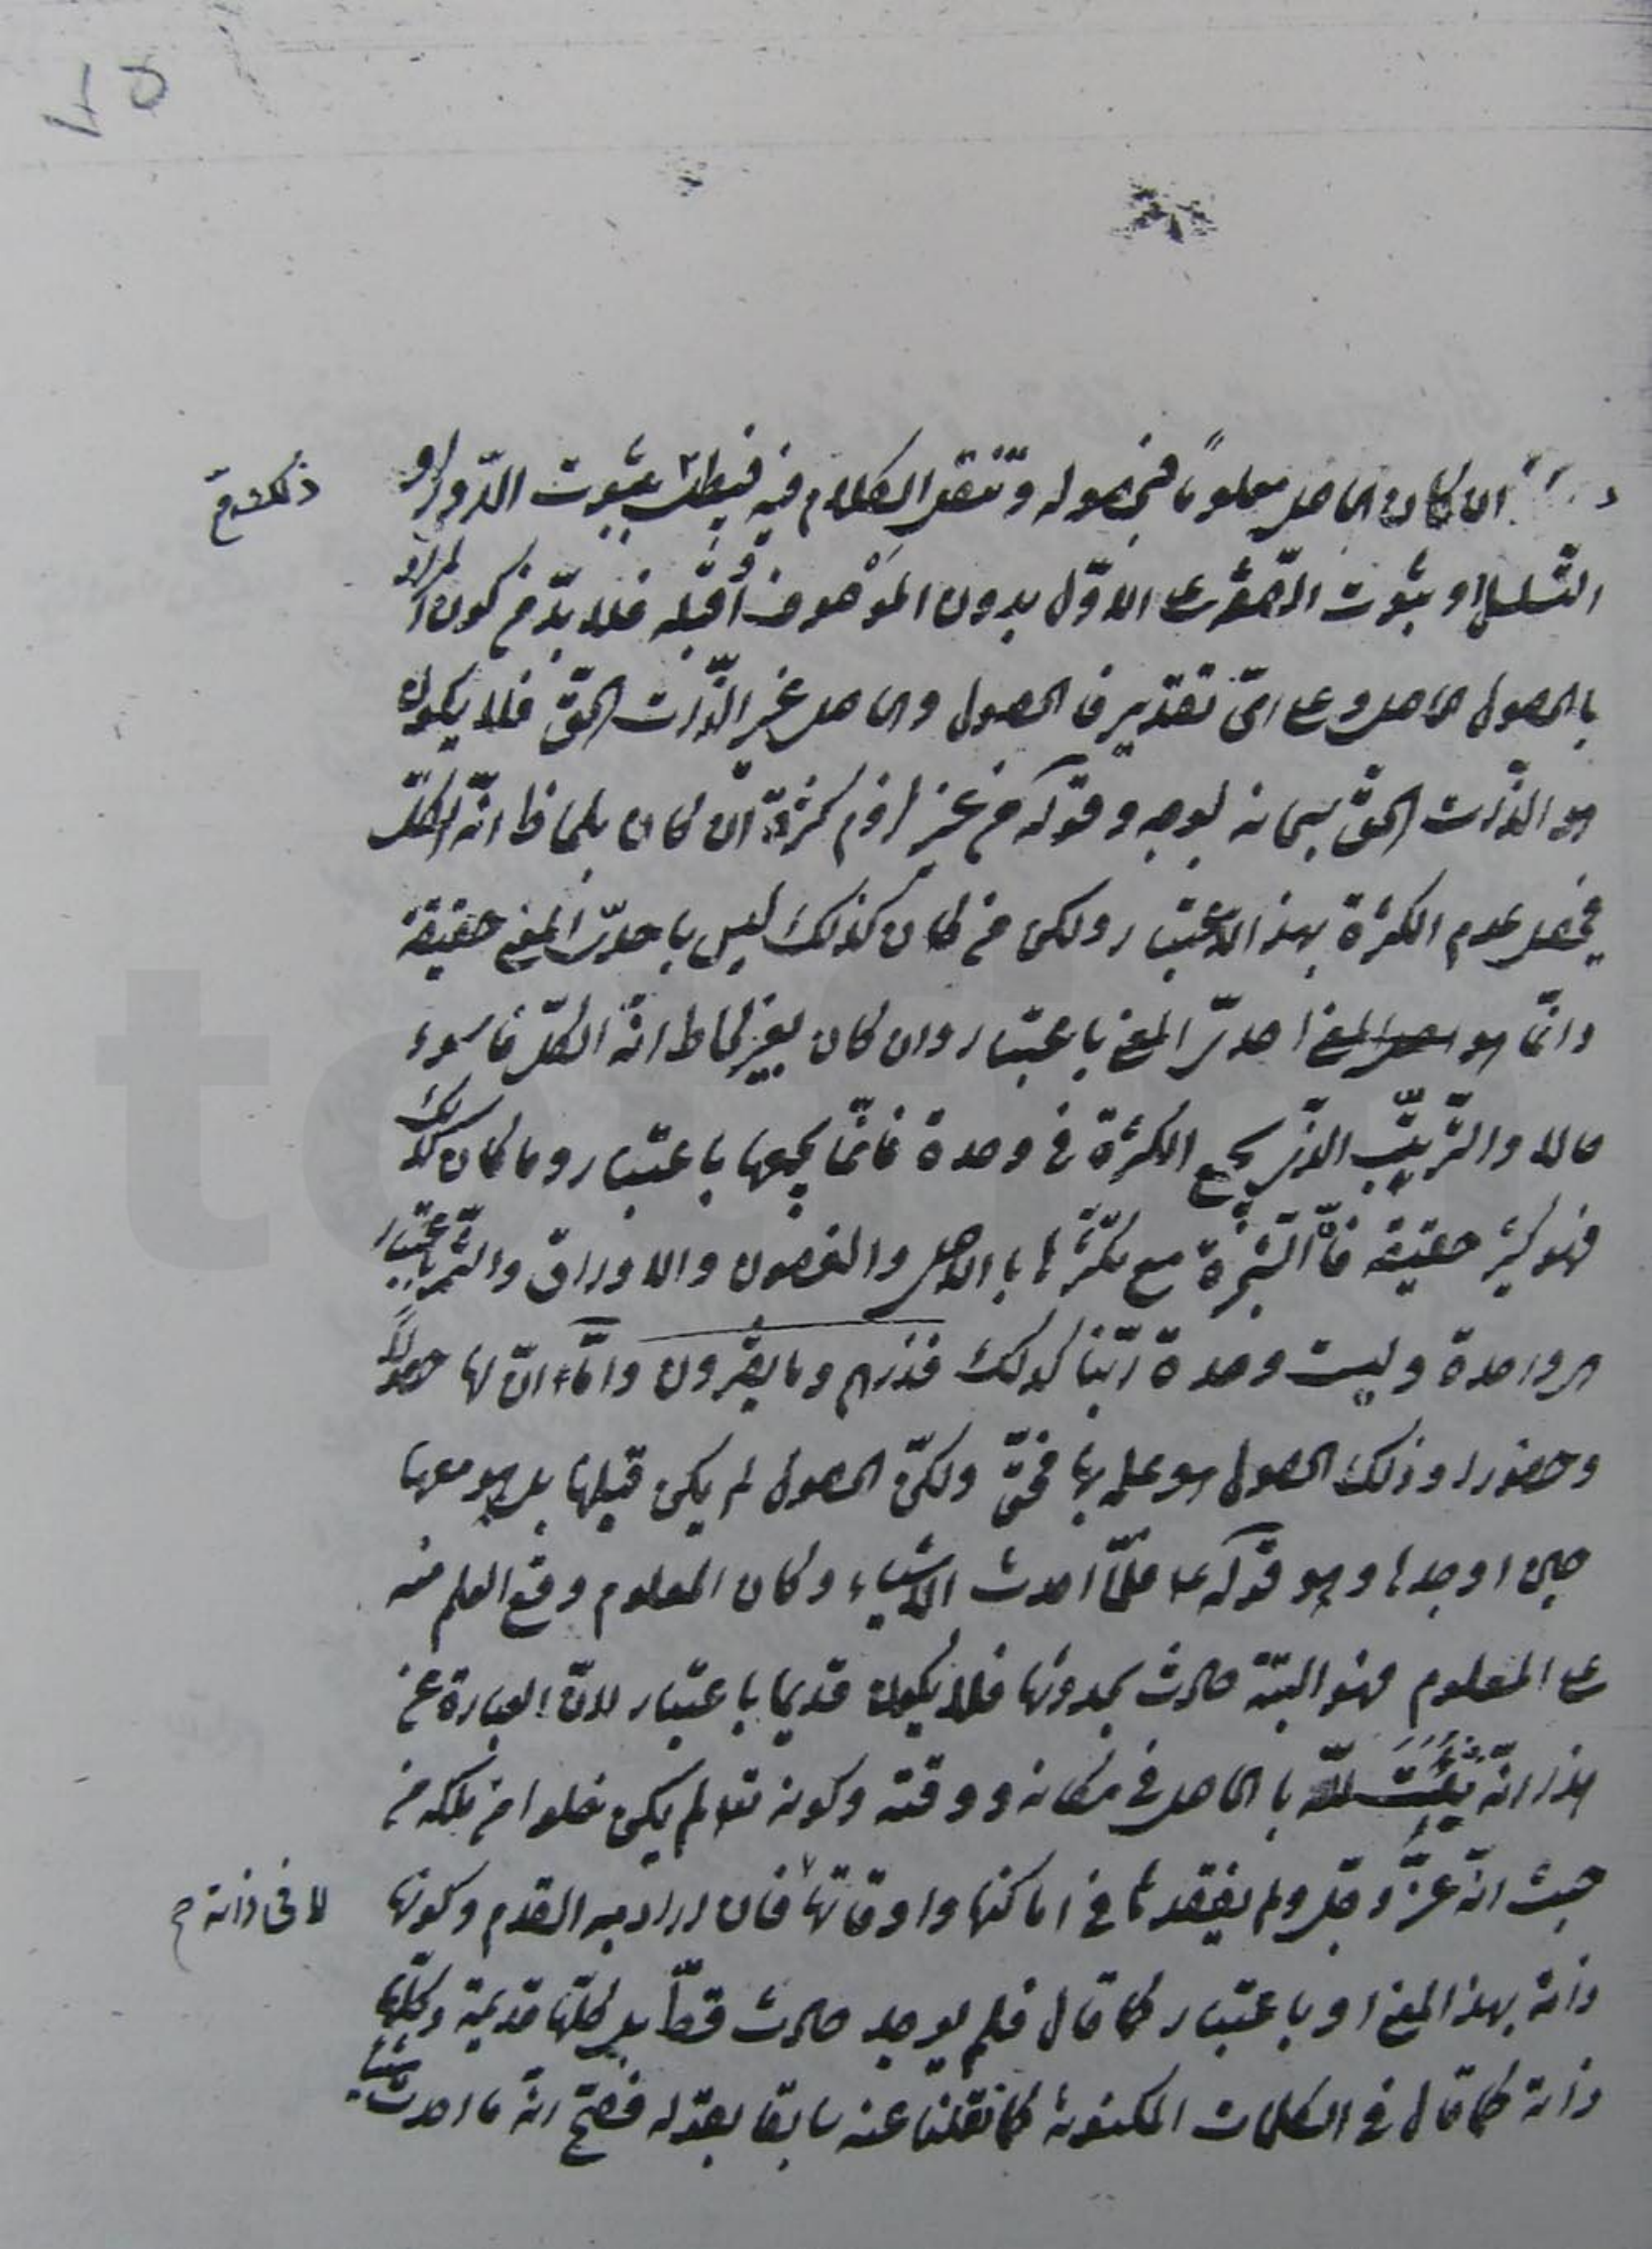 ان كان الحاصل معلوماً فبحصوله وننقل الكلام فيه فيبطل بثبوت الدّور او
ذلك
التّسلسل او بثبوت الاوّل بدون الموصوف او قبله فلا بدّ من كون المراد
بالحصول الحاصل وعلى اىّ تقدير فالحصول والحاصل غير الذّات الحقّ فلا يكون
هو الذّات الحقّ سبحانه بوجه وقوله من غير لزوم كثرة ان كان بلحاظ انّه الكلّ
فيحصل عدم الكثرة بهذا الاعتبار ولكن من كان كذلك ليس باحدىّ المعنى حقيقة
وانّما هو احدىّ المعنى باعتبار وان كان بغير لحاظ انّه الكلّ فاسوء
حالا والتّرتيب الذى يجمع الكثرة فى وحدة فانّما يجمعها باعتبار وما كان كذلك
فهو كثير حقيقة فانّ الشّجرة مع تكثّرها بالاصل والغصون والاوراق والثّمر باعتبار
هى واحدة وليست وحدة ربّنا كذلك فذرهم وما يفترون وامّا انّ لها حصولاً
وحضورا وذلك الحصول هو علمه بها فحقّ ولكنّ الحصول لم يكن قبلها بل هو معها
حين اوجدها وهو قوله ع فلمّا احدث الاشياء وكان المعلوم وقع العلم منه
على المعلوم فهو البتّة حادث بحدوثها فلا يكون قديما باعتبار لانّ العبارة عن
هذا انّه بالحاصل فى مكانه ووقته وكونه تعالى لم يكن خلوا من ملكه من
حيث انّه عزّ وجلّ ولم يفقدها فى اماكنها واوقاتها فان اراد به القدم وكونها
لا فى ذاته
ذاته بهذا المعنى او باعتبار كما قال فلم يوجد حادث قطّ بل كلّها قديمة وكلّها
ذاته كما قال فى الكلمات المكنونة كما نقلنا عنه سابقا بقوله فصحّ انّه ما احدث شيئا